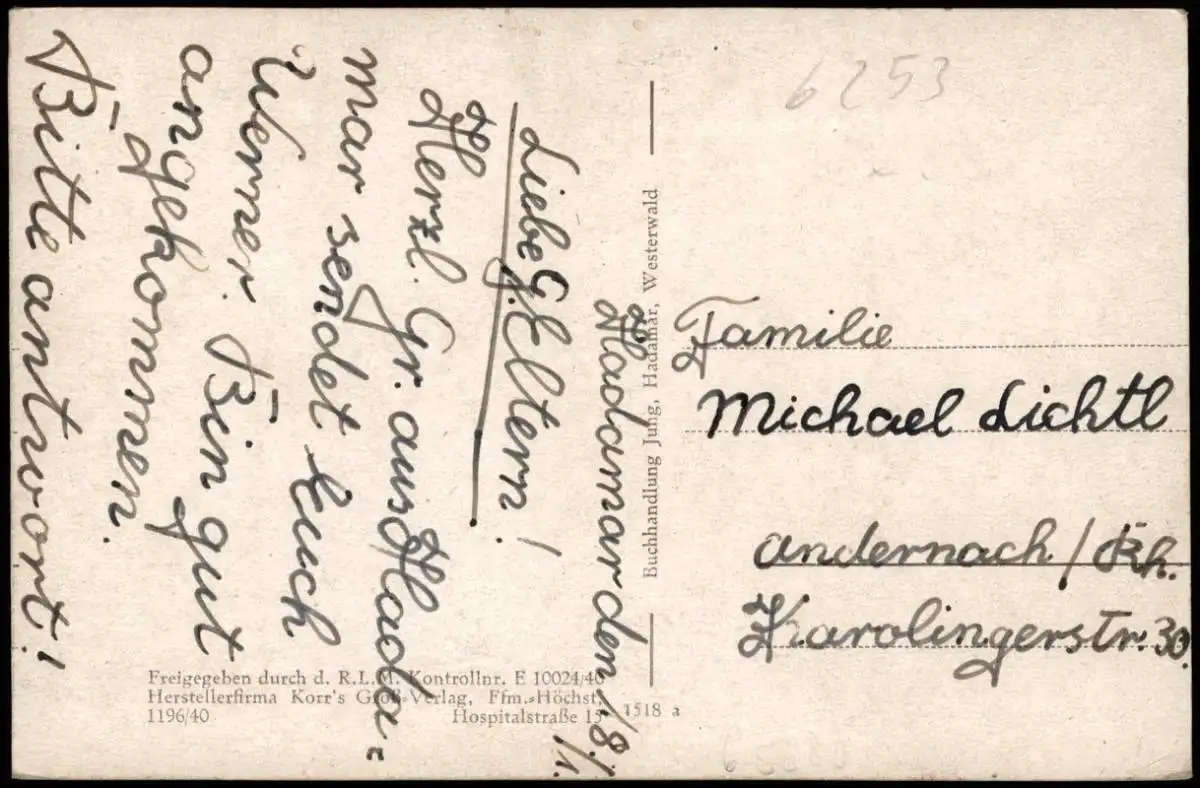 Hadamar den 18./1.
Liebe G. Eltern!
Herzl. Gr. aus Hada-
mar sendet Euch
Werner. Bin gut
angekommen.
Bitte antwort!
6253
Familie
Michael Lichtl
Andernach/Rh.
Karolingerstr. 30.
Buchhandlung Jung, Hadamar, Westerwald
Freigegeben durch d. R.L.M. Kontrollnr. E 10024/40
Herstellerfirma Korr's Groß-Verlag, Ffm.-Höchst,
1196/40 Hospitalstraße 15
1518 a